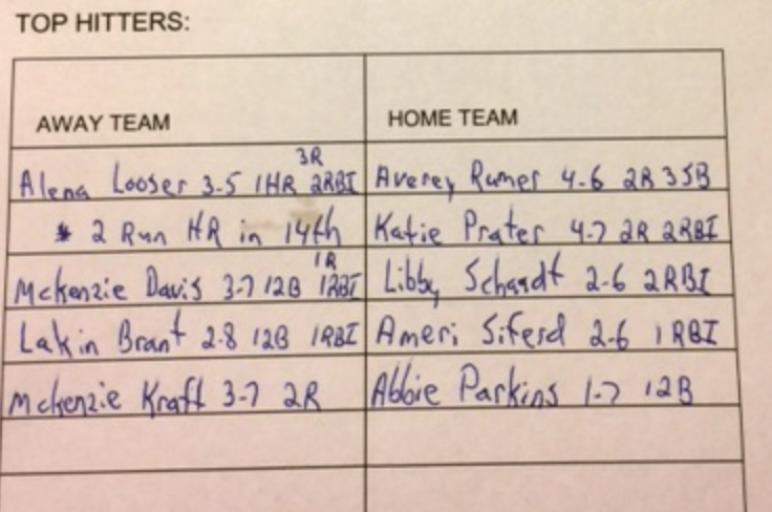 TOP HITTERS:
AWAY TEAM
HOME TEAM
3R
Alena Looser 3-5 1HR 2RBI
Averey Rumer 4-6 2R 3SB
* 2 Run HR in 14th
Katie Prater 4-7 2R 2RBI
1R
Mckenzie Davis 3-7 12B 1RBI
Libby Schardt 2-6 2RBI
Lakin Brant 2-8 12B 1RBI
Ameri Siferd 2-6 1RBI
Mckenzie Kraft 3-7 2R
Abbie Parkins 1-7 12B